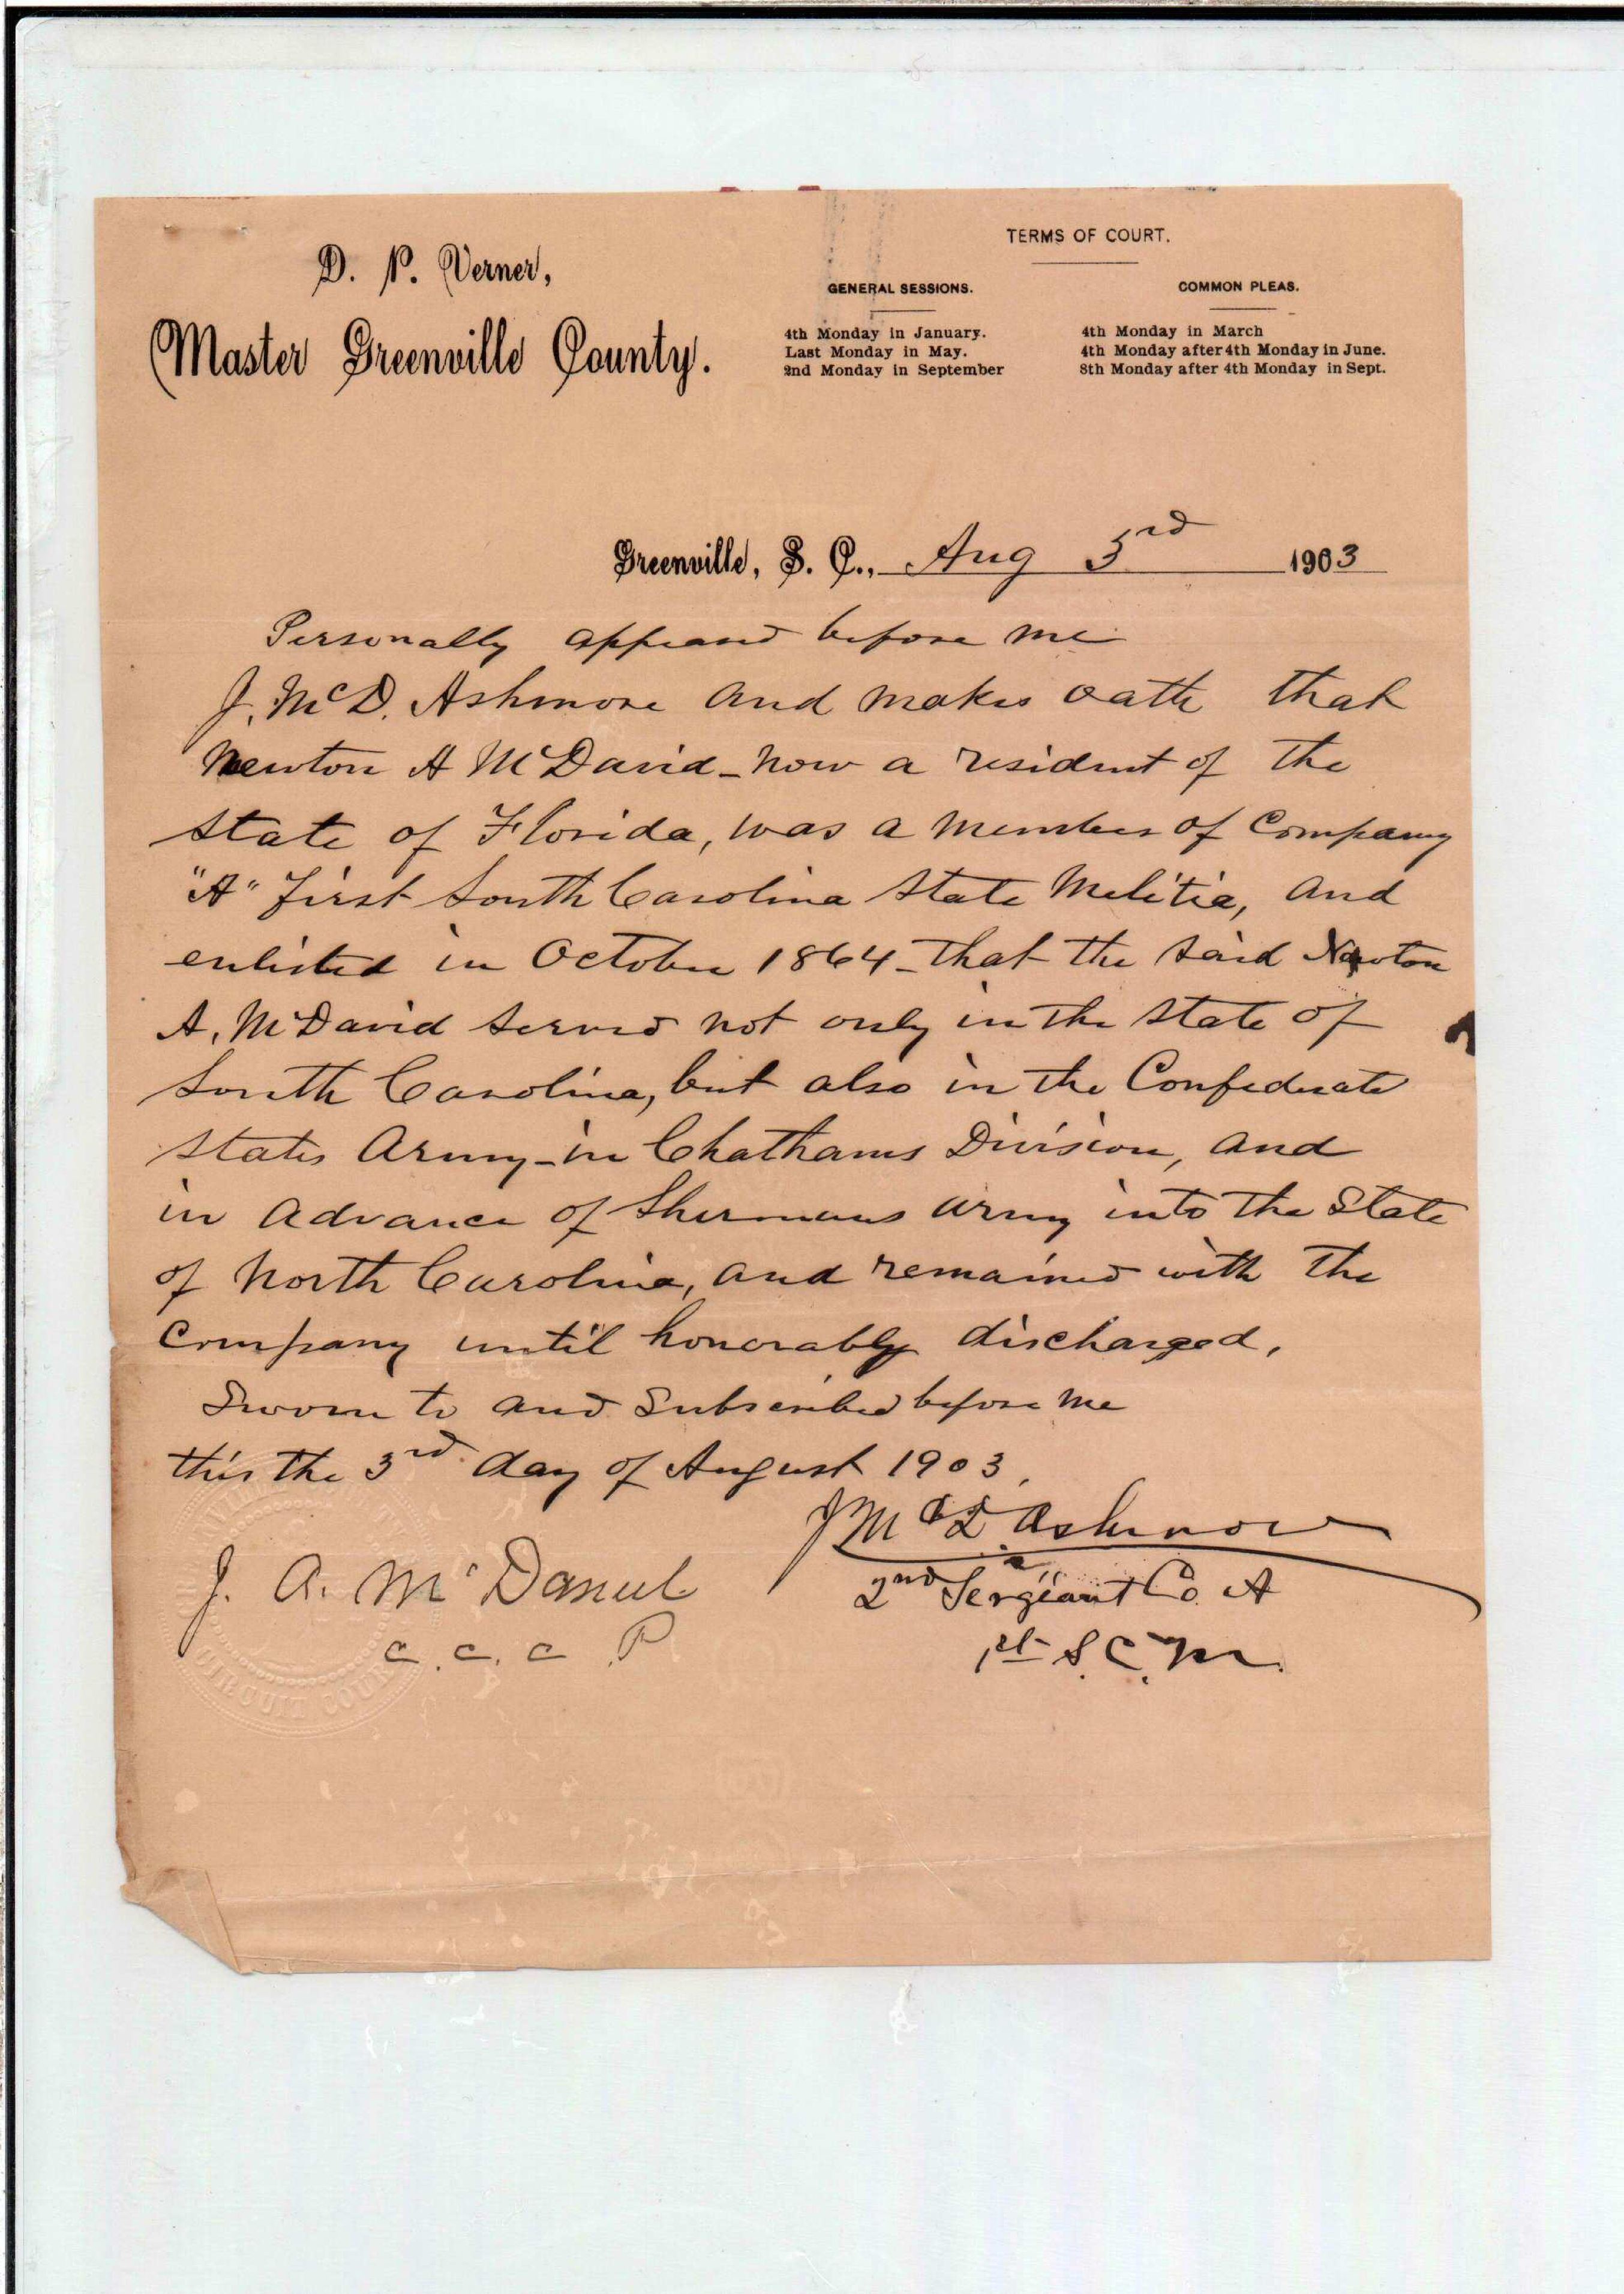 D. P. Verner,
Master Greenville County.
TERMS OF COURT.
GENERAL SESSIONS.
4th Monday in January.
Last Monday in May.
2nd Monday in September
COMMON PLEAS.
4th Monday in March
4th Monday after 4th Monday in June.
8th Monday after 4th Monday in Sept.
Greenville, S. C., Aug 3rd 1903
Personally appeared before me
J. McD. Ashmore and makes oath that
Newton A McDavid - now a resident of the
State of Florida, was a member of Company
"A" first South Carolina State Melitia, and
enlisted in October 1864 - that the said Newton
A. McDavid served not only in the State of
South Carolina, but also in the Confederate
States Army - in Chathams Division, and
in advance of Shermans army into the State
of North Carolina, and remained with the
Company until honorably discharged,
Sworn to and Subscribed before me
this the 3rd day of August 1903,
J McD Ashmore
2nd Sergeant Co. A
1st S. C. M.
J. A. McDaniel
C. C. C P
CIRCUIT COURT